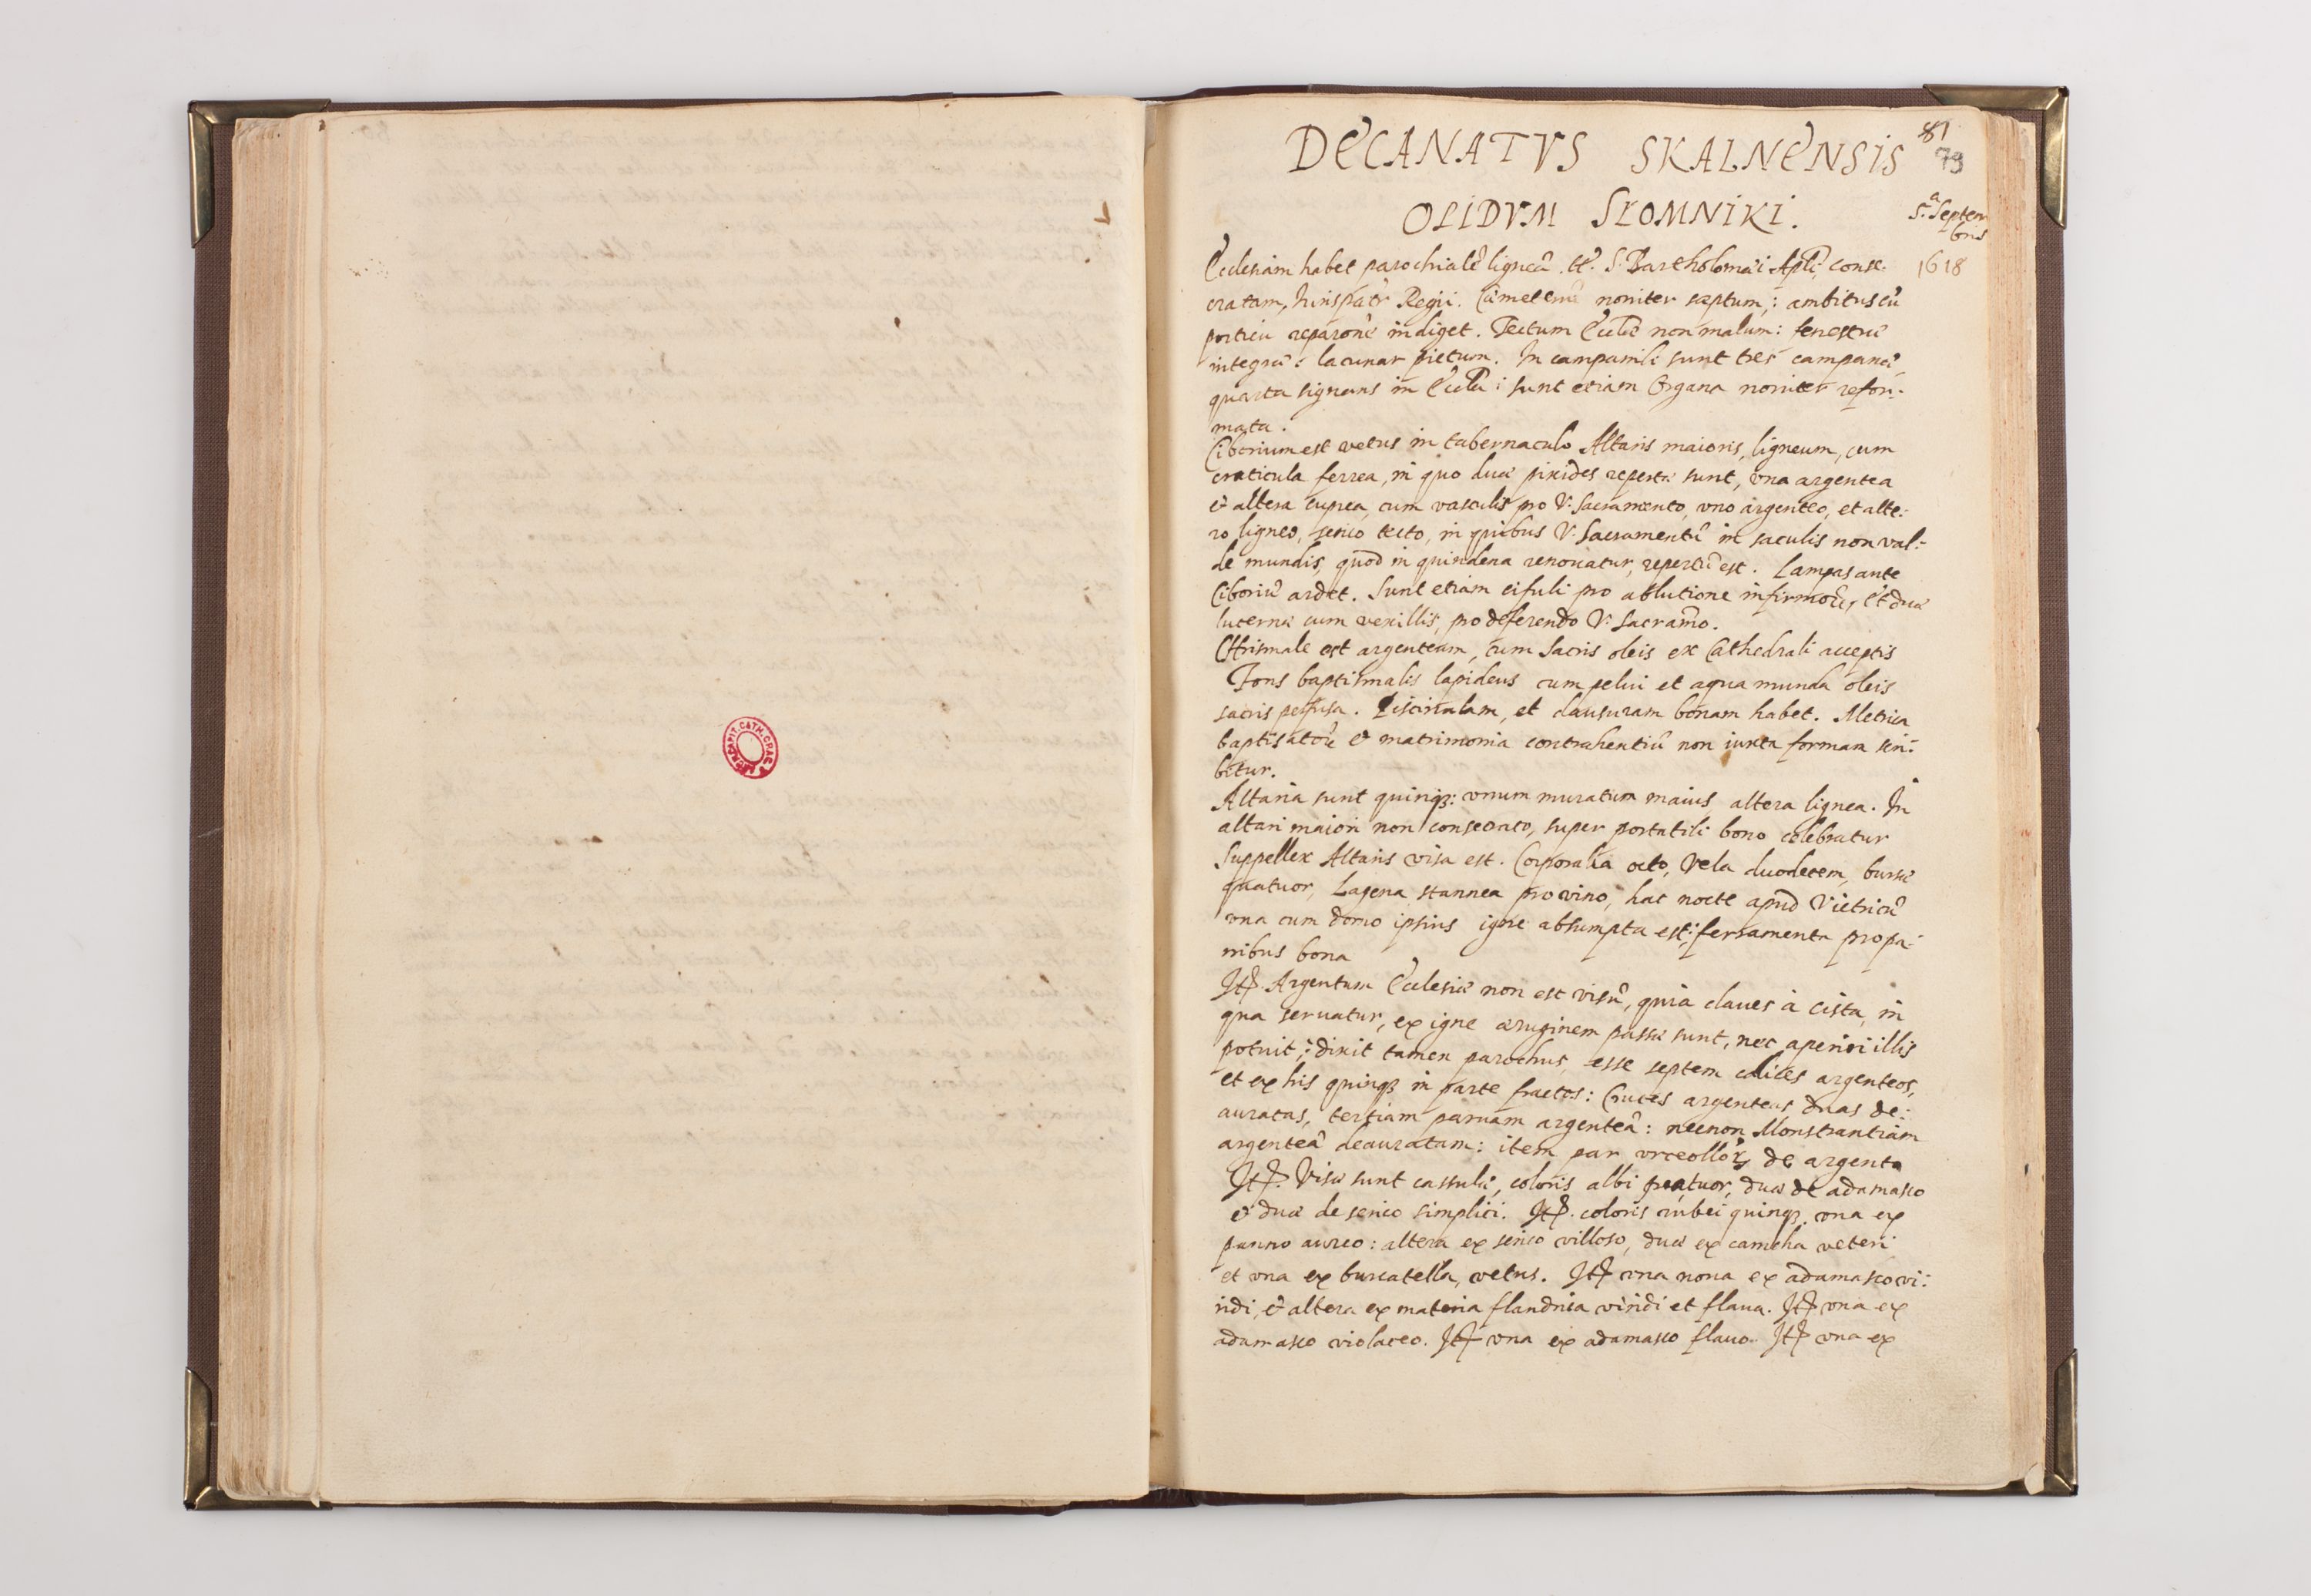 DECANATVS SKALNENSIS
81
79
OPIDVM SŁOMNIKI.
5.a Septem
bris
1618
Ecclesiam habet parochialē ligneā tt. S. Bartholomæi Apłi, conse-
cratam, Iurispatr Regii. Cæmeteriū noniter septum; ambitus cū
porticu reparone indiget. Tectum Eccłæ non malum: fenestræ
integræ: lacunar pictum. In campanili sunt tres campanæ,
quarta signans in Eccła: sunt etiam Organa noniter refor-
mata.
Ciborium est vetus in tabernaculo Altaris maioris, ligneum, cum
craticula ferrea, in quo duæ pixides repertæ sunt, vna argentea
& altera cuprea, cum vasculis pro V. Sacramento, vno argenteo, et alte-
ro ligneo, serico tecto, in quibus V. Sacramentū in saculis non val-
de mundis, quod in quindena renouatur, repertū est. Lampas ante
Ciboriū ardet. Sunt etiam cifuli pro ablutione infirmorū, et duæ
lucernæ cum vexillis, pro deferendo V. Sacramō.
Chrismale est argenteum, cum sacris oleis ex Cathedrali acceptis
Fons baptismalis lapideus cum pelui et aqua munda oleis
sacris perfusa. Piscinulam, et clausuram bonam habet. Metrica
baptisatorū & matrimonia contrahentiū non iuxta formam scri-
bitur.
Altaria sunt quinq3: vnum muratum maius altera lignea. In
altari maiori non consecrato, super portatili bono celebratur
Suppellex Altaris visa est. Corporalia octo, Vela duodecem, bursæ
quatuor, Lagena stannea pro vino, hac nocte apud Vietricū
vna cum domo ipsius igne absumpta est: ferramenta pro pa-
nibus bona
Itē. Argentum Ecclesiæ non est visū, quia claues à cista, in
qua seruatur, ex igne æruginem passæ sunt, nec aperiri illis
potuit; dixit tamen parochus, esse septem calices argenteos,
et ex his quinq3 in parte fractos: Cruces argenteas duas de-
auratas, tertiam paruam argenteā: necnon Monstrantiam
argenteā deauratam: item par vrceollorū de argento
Itē. Visæ sunt casulæ, coloris albi quatuor, duæ de adamasco
& duæ de serico simplici. Itē. coloris rubei quinq3. vna ex
panno aureo: altera ex serico villoso, duæ ex camcha veteri
et vna ex burcatella, vetus. Itē vna noua ex adamasco vi-
ridi, & altera ex materia flandrica viridi et flaua. Itē vna ex
adamasco violaceo. Itē vna ex adamasco flauo. Itē vna ex